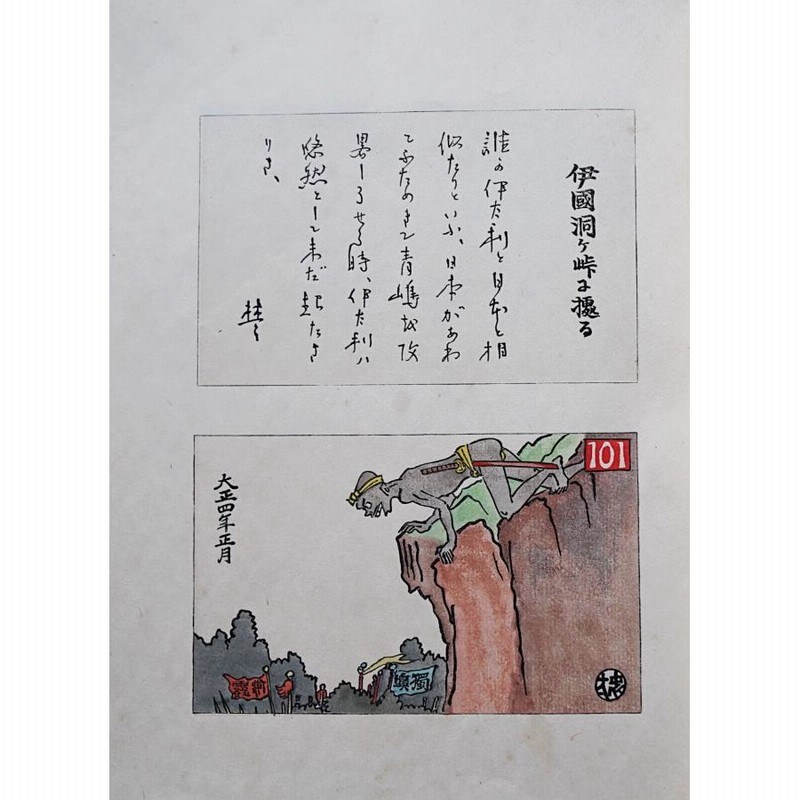 伊國洞ケ峠に據る
誰か伊太利と日本と相
似たりといふ、日本があわ
てふためきて青嶋を攻
畧しつゝせる時、伊太利ハ
悠然として未だ起たざ
りき、
大正四年正月
101
獨墺